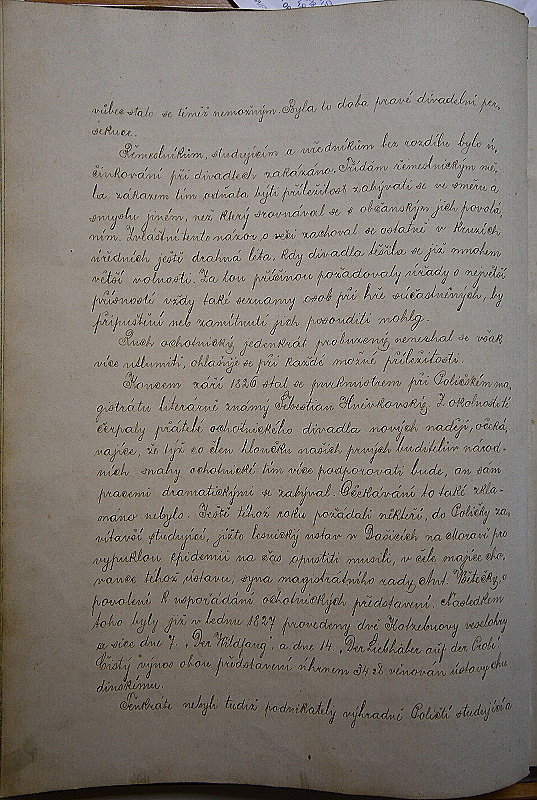 vůbec stalo se téměř nemožným. Byla to doba pravé divadelní per-
sekuce.
Řemeslníkům, studujícím a úředníkům bez rozdílu bylo ú,
činkování při divadlech zakázáno. Třídám řemeslnickým mě,
la zákazem tím odňata býti příležitost zabývati se ve směru a
smyslu jiném, než který srovnával se s občanským jich povolá,
ním. Zvláštní tento názor o věci zachoval se ostatně v kruzích
úředních ještě drahná léta, kdy divadla těšila se již mnohem
větší volnosti. Za tou příčinou požadovaly úřady s největší
přísností vždy také seznamy osob při hře súčastněných, by
připuštění neb zamítnutí jich posouditi mohly.
Ruch ochotnický jedenkrát probuzený, nenechal se však
více utlumiti, ohlašuje se při každé možné příležitosti.
Koncem září 1826 stal se purkmistrem při Poličském ma,
gistrátu literárně známý Šebestian Hněvkovský. Z okolnosti té
čerpaly přátelé ochotnického divadla nových nadějí, očeká,
vajíce, že týž co člen hloučku našich prvých buditelův národ-
ních snahy ochotnické tím více podporovati bude, an sám
pracemi dramatickými se zabýval. Očekávání to také zkla-
máno nebylo. Ještě téhož roku požádali někteří, do Poličky za,
vítavší studující, jižto lesnický ústav v Dačicích na Moravě pro
vypuklou epidemii na čas opustiti musili, v čele majíce cho,
vance téhož ústavu, syna magistrátního rady Ant. Witečky, o
povolení k uspořádání ochotnických představení. Následkem
toho byly již v lednu 1827 provedeny dvě Kotzebuovy veselohry
a sice dne 7. „Der Wildfang" a dne 14. „Der Liebhaber auf der Probe".
Čistý výnos obou představení úhrnem 34 zl věnován ústavu chu
dinskému.
Tenkráte nebyli tudíž podnikately výhradně Poličtí studující a